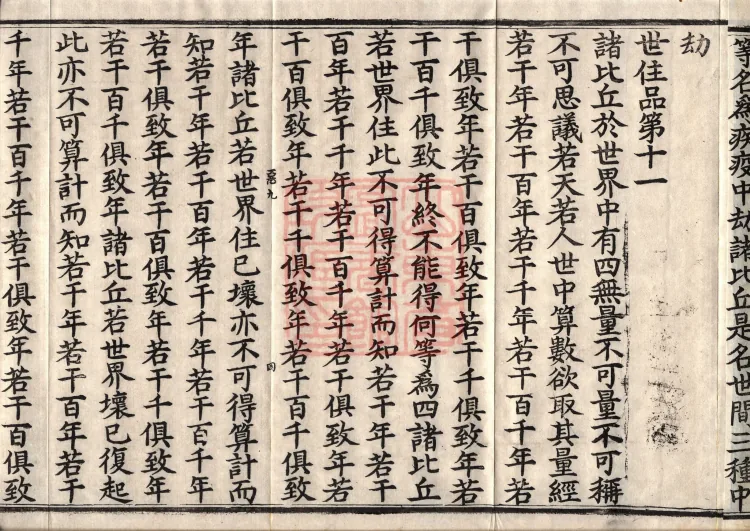 等名為疾疫中劫諸比丘是名世間三種中
劫
世住品第十一
諸比丘於世界中有四無量不可量不可稱
不可思議若天若人世中算數欲取其量經
若干年若干百年若干千年若干百千年若
干俱致年若干百俱致年若干千俱致年若
干百千俱致年終不能得何等為四諸比丘
若世界住此不可得算計而知若干年若干
百年若干千年若干百千年若干俱致年若
干百俱致年若干千俱致年若干百千俱致
年諸比丘若世界住已壞亦不可得算計而
知若干年若干百年若干千年若干百千年
若干俱致年若干百俱致年若干千俱致年
若干百千俱致年諸比丘若世界壞已復起
此亦不可算計而知若干年若干百年若干
千年若干百千年若干俱致年若干百俱致